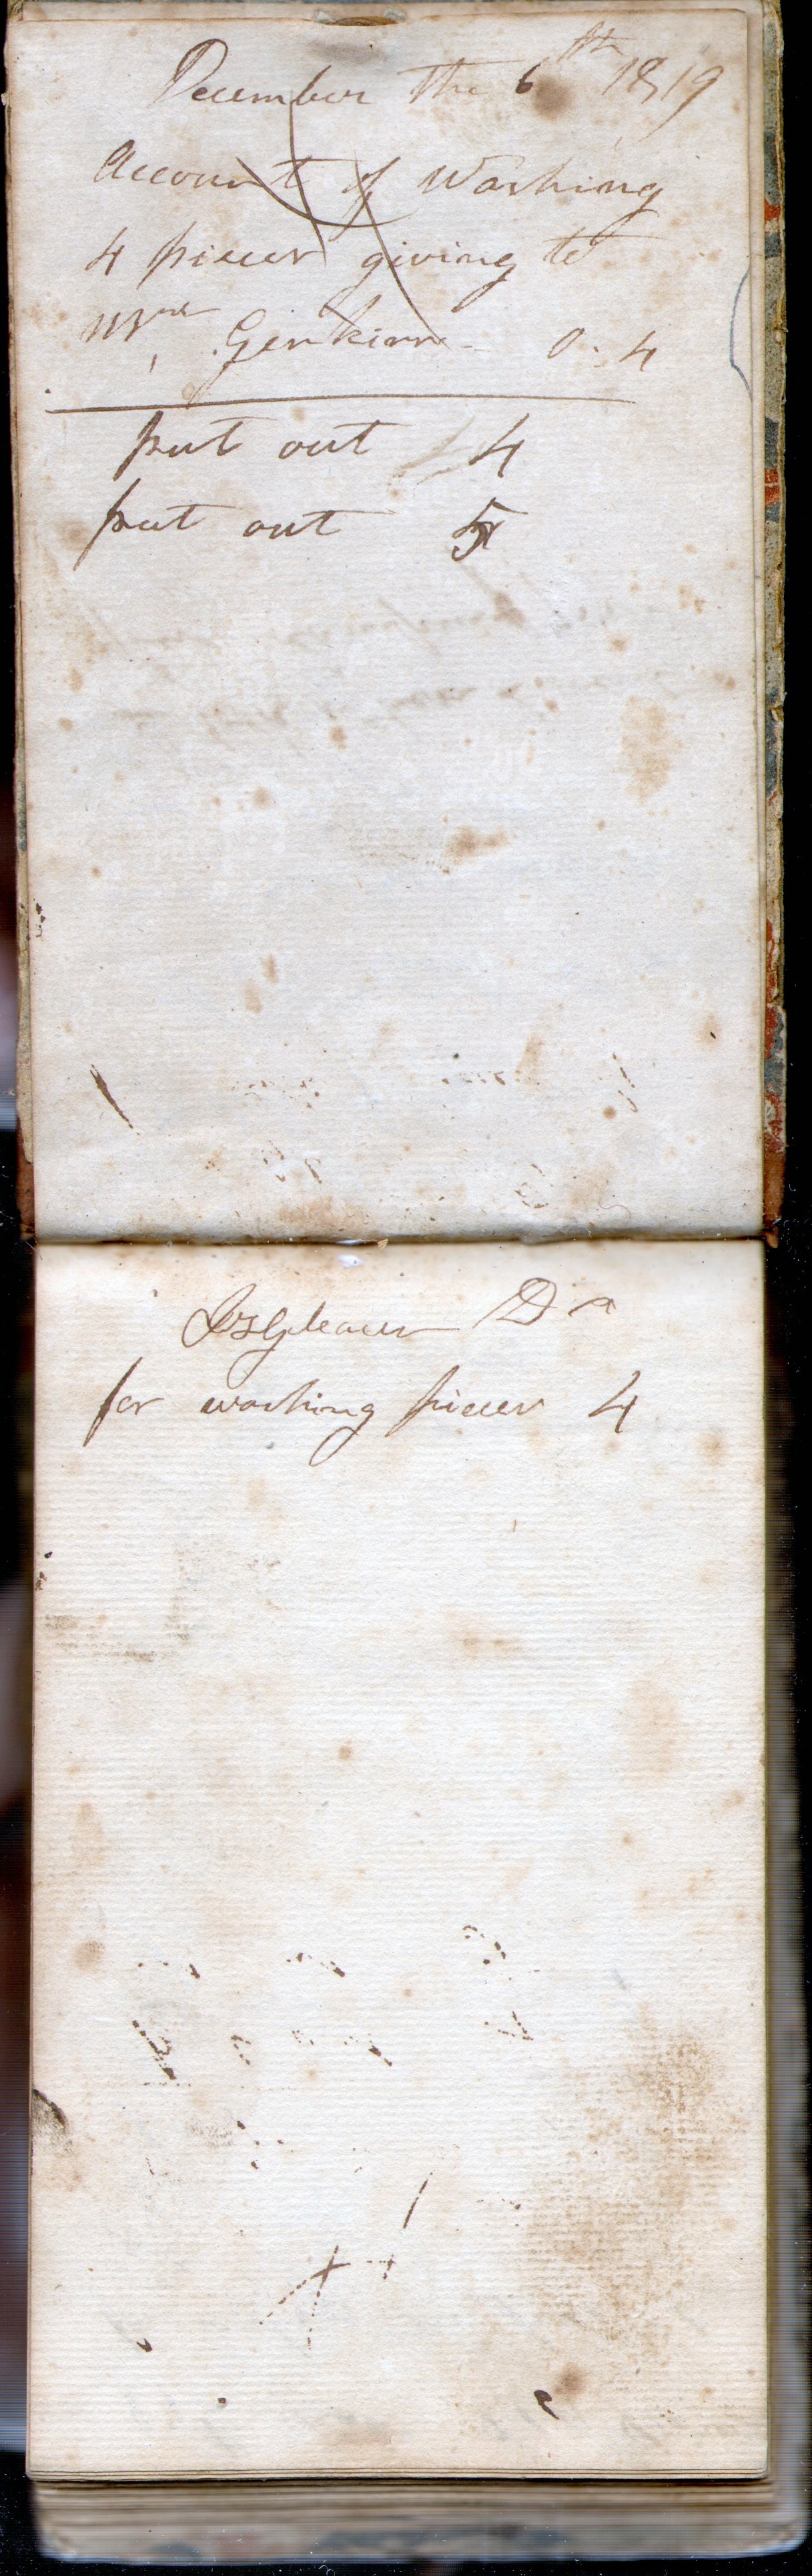 December the 6th 1819
Account of Washing
4 pieces giving to
Mrs 0. 4
put out 4
put out 5
Dr
for washing pieces 4